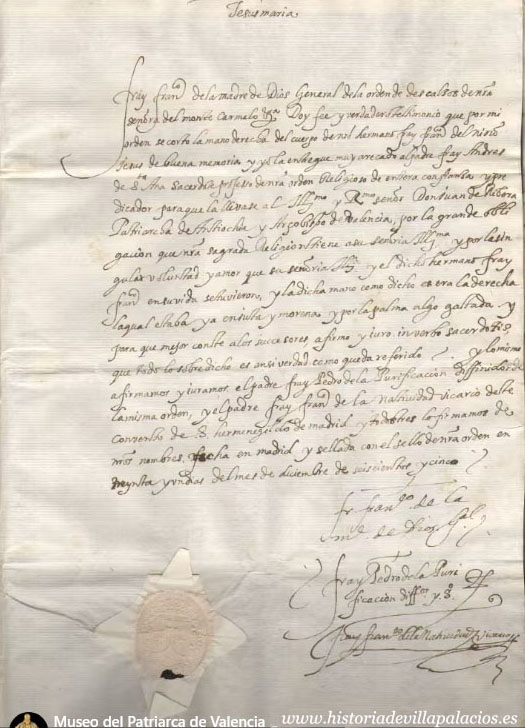 Jesus maria
fray fran.co de la madre de Dios General de la orden de descalsos de nra
señora del monte Carmelo &.a Doy fee y verdadero testimonio que por mi
orden se corto la mano derecha del cuerpo de nro hermano fray fran.co del niño
Jesus de buena memoria y yo la entregue muy a recado al padre fray Andres
de S.ta Ana sacerdote professo de nra orden Religioso de entera confiansa y pre
dicador para que la llevase al Ill.mo y R.mo señor Don Juan de Ribera
Patriarcha de Antiochia y Arçobispo de valencia, por la grande obli
gacion que nra sagrada Religion tiene a su señoria Ill.ma y por la sin
gular voluntad y amor que su señoria Ill.ma y el dicho hermano fray
fran.co en su vida se tuvieron, y la dicha mano como dicho es era la derecha
la qual estaba ya enjuta y morena y por la palma algo gastada. y
para que mejor conste a los succesores, afirmo y juro in verbo sacerdotis,
que todo lo sobre dicho es ansi verdad como queda referido y lo mismo
afirmamos y juramos el padre fray Pedro de la Purificacion diffinidor de
la misma orden, y el padre fray fran.co de la Natividad vicario deste
convento de S. hermenegildo de madrid y todos tres lo firmamos de
nros nombres, fecha en madrid y sellado con el sello de nra orden en
treynta y un dias del mes de diciembre de seiscientos y cinco
fr fran.co de la
m.e de Dios G.al
fray Pedro de la Puri
ficacion diff.or y S.
fray fran.co de la Natividad Vicario
Museo del Patriarca de Valencia
www.historiadevillapalacios.es